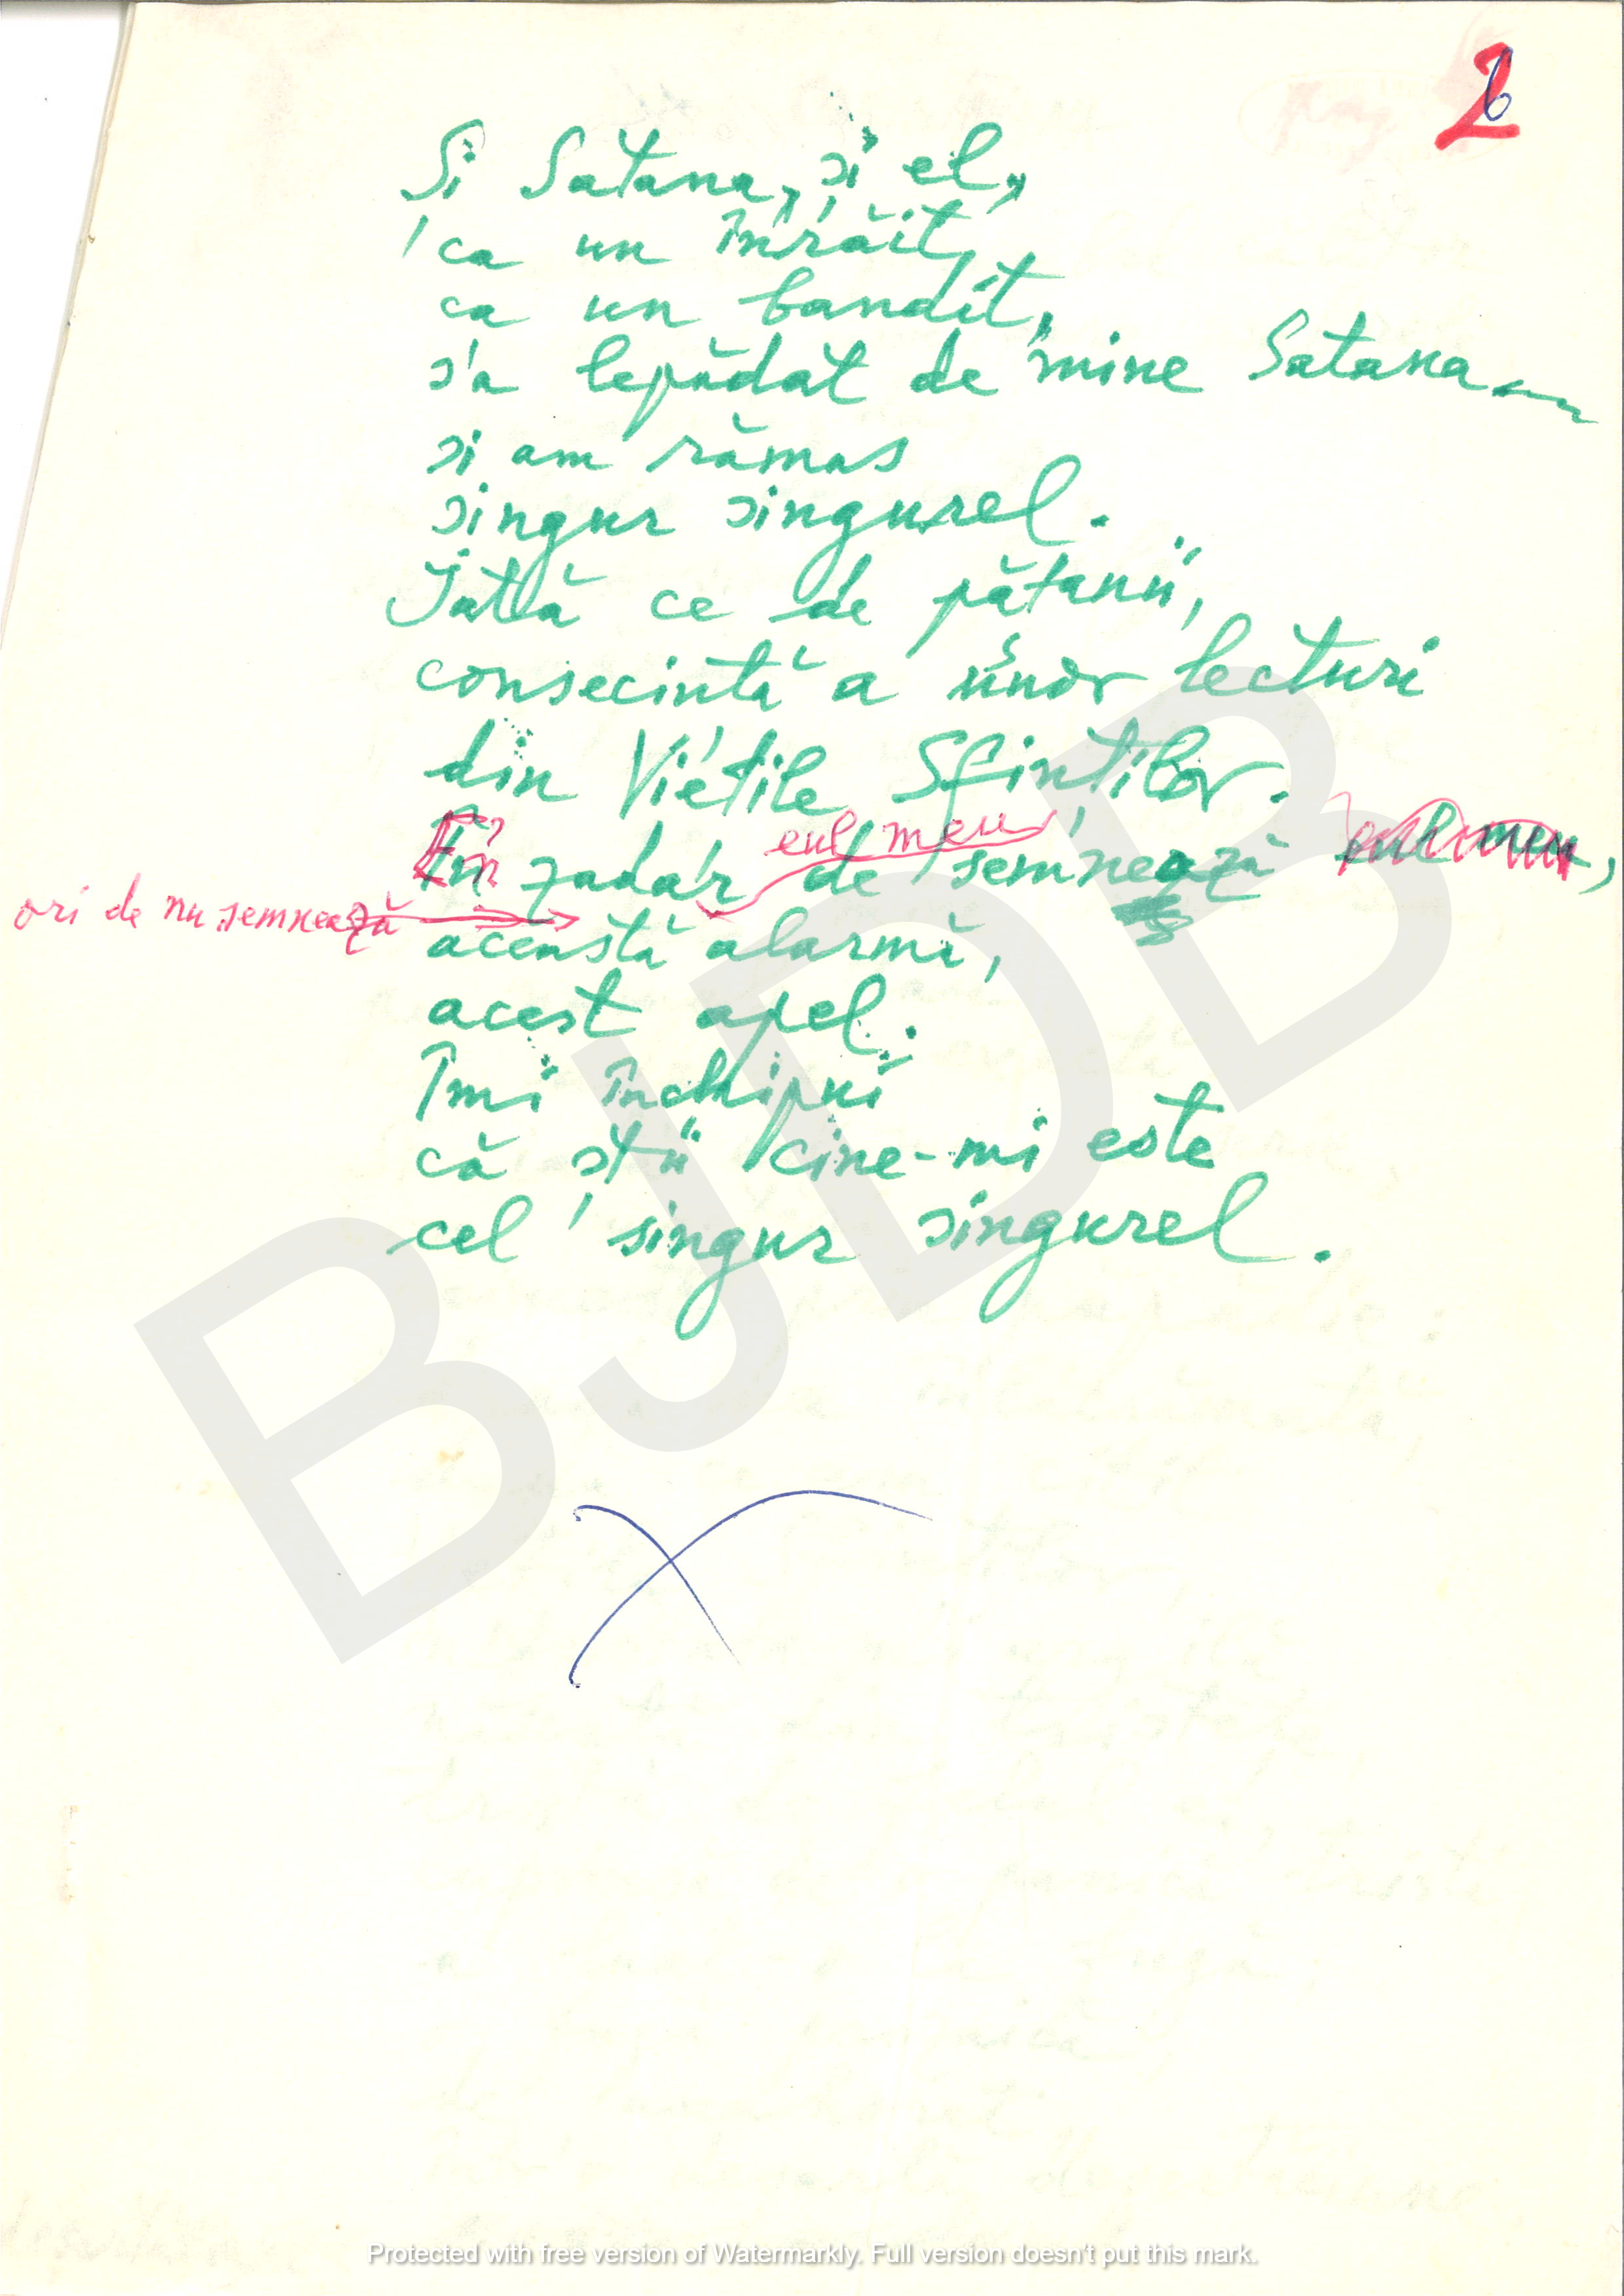 2
6
Și Satana, și el,
ca un înrăit,
ca un bandit,
s'a lepădat de mine Satana
și am rămas
singur singurel.
Iată ce de pățanii,
consecință a unor lecturi
din Viețile Sfinților.
În zadar de semnează eul meu,
eul meu
ori de nu semnează
această alarmă,
acest apel.
Îmi închipui
că știi cine-mi este
cel singur singurel.
BJDB
Protected with free version of Watermarkly. Full version doesn't put this mark.